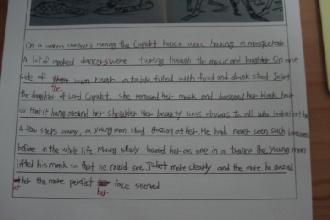 On a warm summer's evening the Capulet house were having a masquerade.
A lot of masked dancers were turning through the music and laughter. On one
side of the room was a table filled with food and drink stood Juliet
the daughter of Lord Capulet. She removed her mask and loosened her black hair
so that it hung around her shoulder. Her beauty was obvious to all who looked at her
A few steps away, a young man stood gazing at her. He had never seen such
before in the whole life. Moving slowly toward her as one in a trance the young man
lifted his mask so that he could see Juliet more clearly and the more he gazed
at her the more perfect her face seemed